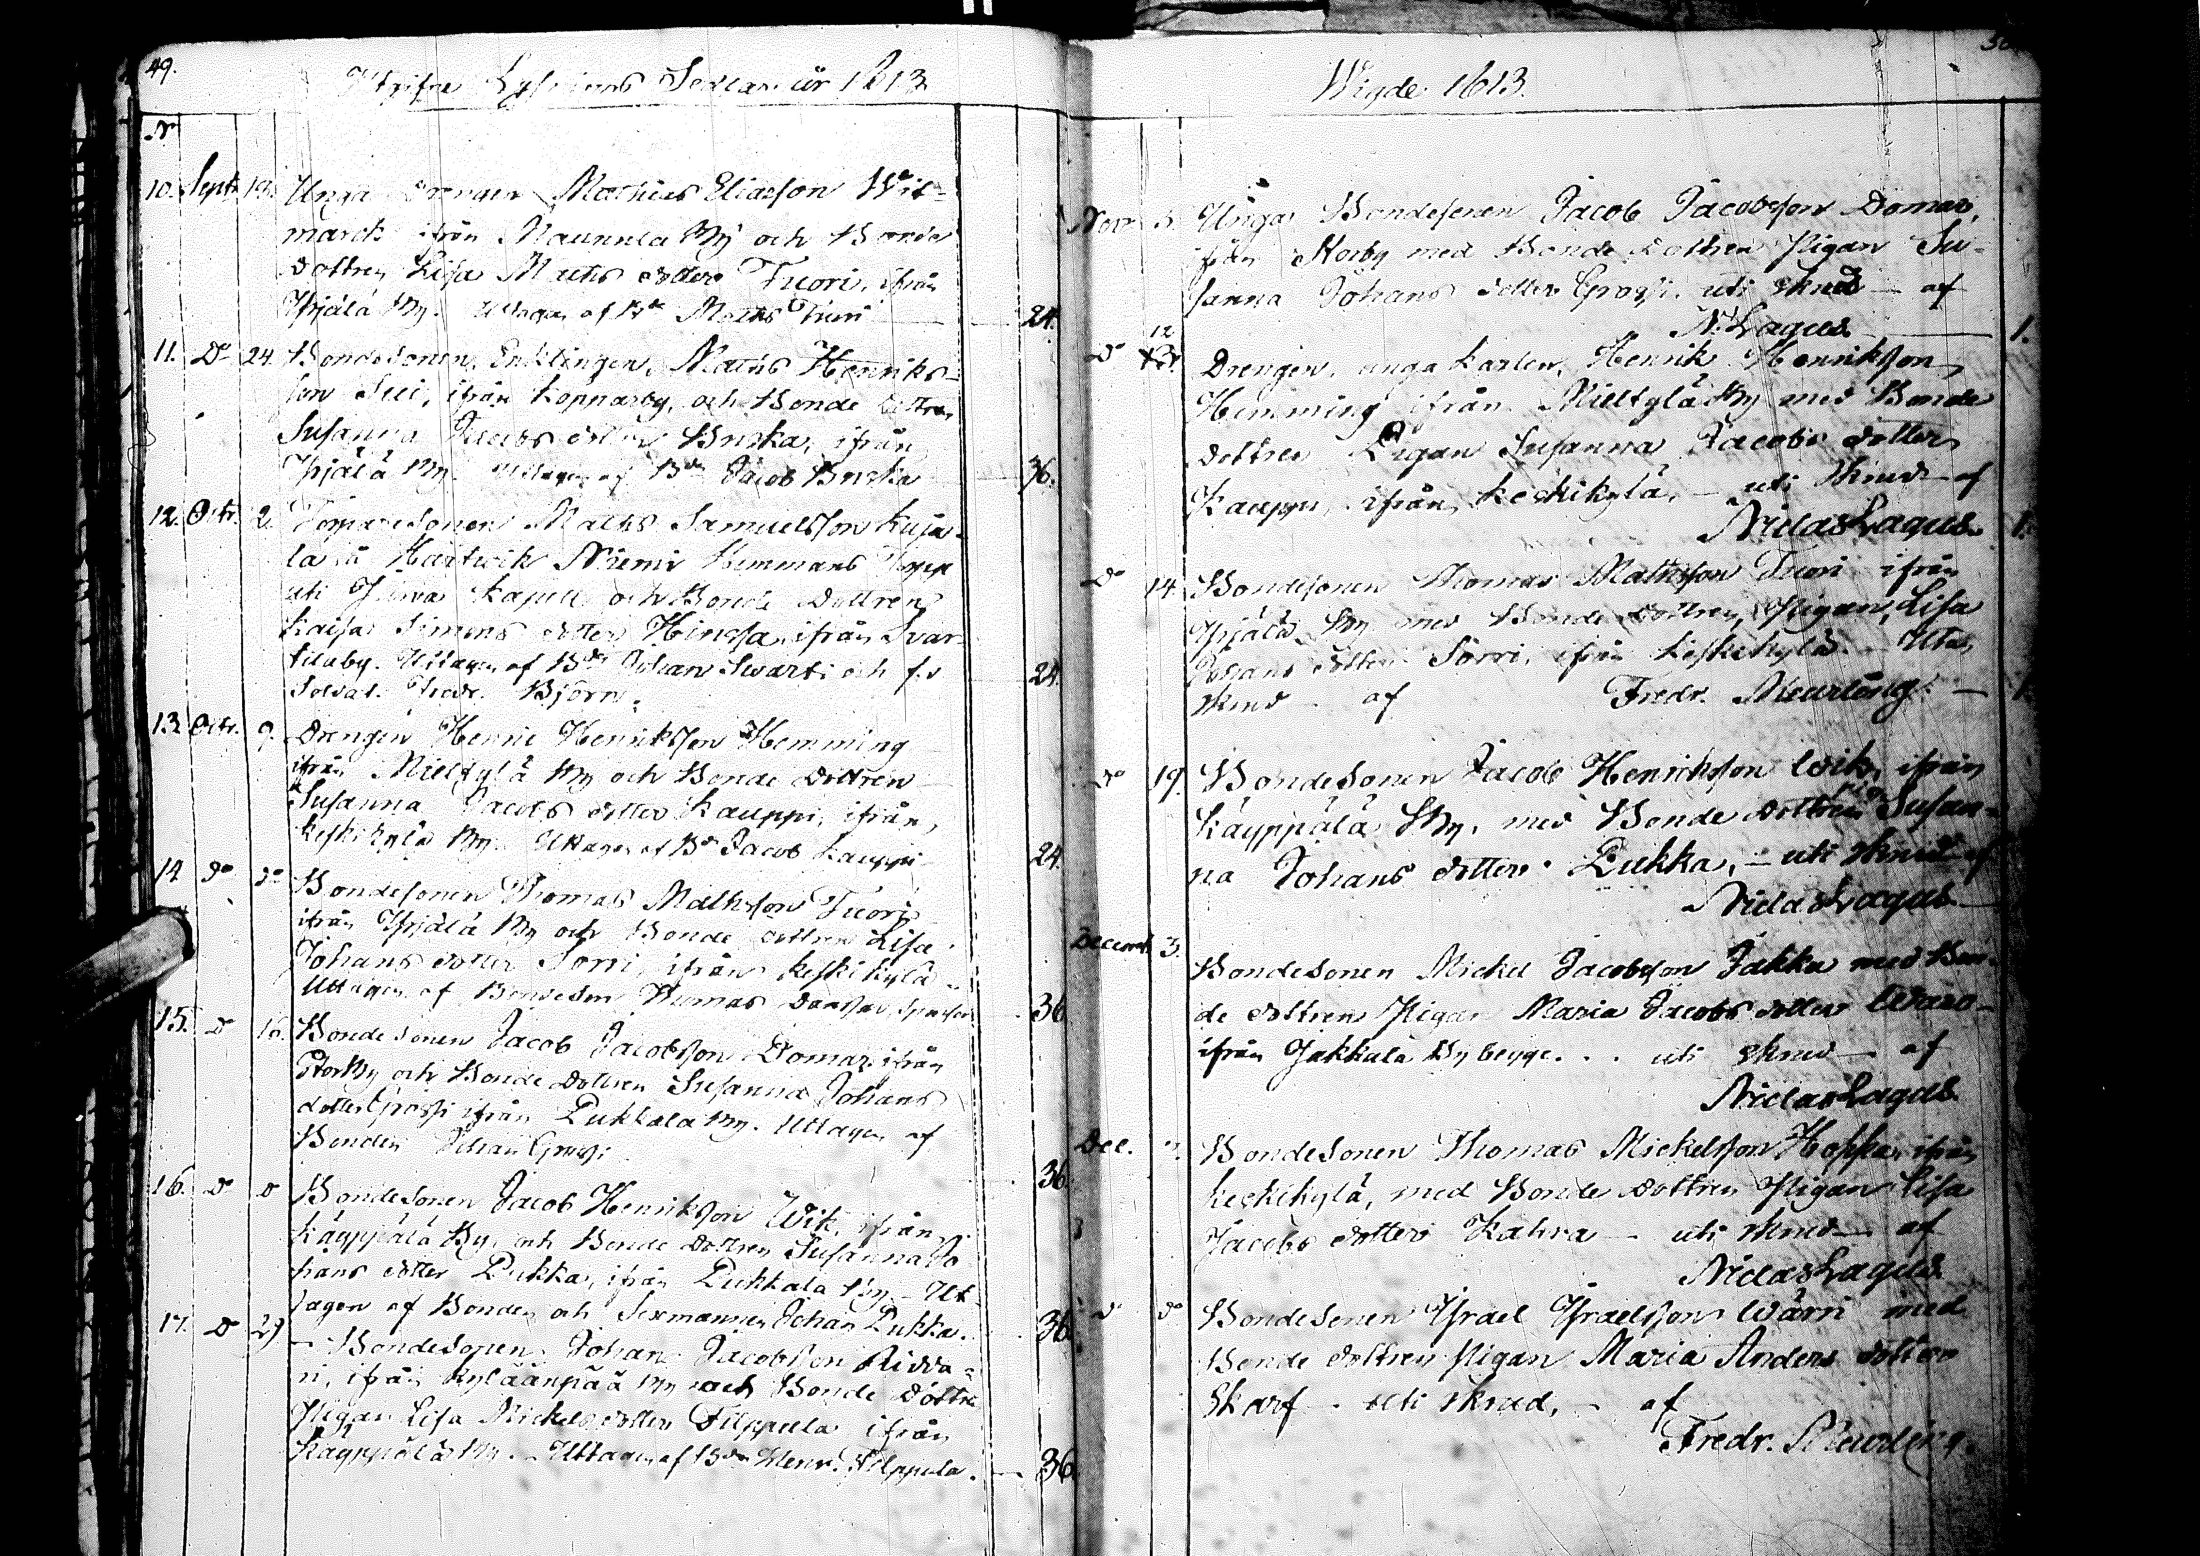 49.
Lysnings Sedlar år 1813
No
10. Septr 19. Unga Drengen Mathias Eliasson Wit-
marck ifrån Maunula By och Bonde
Dottren Lisa Matts dotter Tuori, ifrån
Ypjälä By. Uttagen af Bdn Matts Tuori 24.
11. Do 24. Bondesonen, Enklingen, Matts Henriks-
son Sui, ifrån Kopparby, och Bonde Dottren
Susanna Jacobs dotter Buska, ifrån
Ypjälä By. Uttagen af Bdn Jacob Buska 36.
12. Octr. 2. Matts Samuelsson Kuja-
la å Hartwik Niemi Hemmans
uti Kapell och Bonde Dottren
Kaisa Simons dotter Hinssa, ifrån Svar-
tilaby. Uttagen af Bdn Johan Swarti och f.d
Soldat. Fredr. Björn. 24.
13. Octr. 9. Drengen Henric Henriksson Hemming
ifrån Mieltylä By och Bonde Dottren
Susanna Jacobs dotter Kauppi, ifrån
Keskikylä By. Uttagen af Bdn Jacob Kauppi 24.
14 do do Bondesonen Thomas Mathsson Tuori
ifrån Ypjälä By och Bonde dottren Lisa
Johans dotter Sorri, ifrån Keskikylä.
Uttagen af Bondeson Thomas 36
15. D 16. Bondesonen Jacob Jacobsson Domar ifrån
Storby och Bonde Dottren Susanna Johans
dotter Grossi ifrån Pukkala By. Uttagen af
Bonden Johan Grossi 36.
16. D D Bondesonen Jacob Henriksson Wik, ifrån
Käyppälä By, och Bonde Dottren Susanna Jo
hans dotter Pukka, ifrån Pukkala By - Ut-
tagen af Bonden och Sexmannen Johan Pukka. 36.
17. D 29 Bondesonen Johan Jacobsson Ridda-
ri, ifrån Kyläänpää By och Bonde Dottre
Pigan Lisa Mickelsdotter Filppula ifrån
Käyppälä By. Uttagen af Bdn Henr. Filppula. 36.
Wigde 1813.
Novr 5. Unga Bondesonen Jacob Jacobsson Domar,
ifrån Storby med Bonde Dottren Pigan Su-
sanna Johans dotter Grossi. uti skrud - af
N. Lagus 1.
Do 12 Drengen, unga Karlen, Henrik Henriksson
Hemming ifrån Mieltylä By med Bonde
dottren Pigan Susanna Jacobs dotter
Kauppi, ifrån Keskikylä. - uti skrud - af
Niclas Lagus 1.
Do 14. Bondesonen Thomas Mathsson Tuori ifrån
Ypjälä By med Bonde dottren, Pigan, Lisa
Johans dotter Sorri, ifrån Keskikylä. Utan
skrud - af Fredr. Meurling. 1.
Do 19. Bondesonen Jacob Henriksson Wik, ifrån
Käyppälä By, med Bonde dottren Susan-
na Johans dotter Pukka, - uti skrud af
Niclas Lagus
Decemb. 3. Bondesonen Mickel Jacobsson Jakka med Bon-
de dottren Pigan Maria Jacobs dotter
ifrån Jakkala By begge. . . uti skrud - af
Niclas Lagus
Dec. Bondesonen Thomas Mickelsson Hoppa, ifrån
Keskikylä, med Bonde Dottren Pigan Lisa
Jacobs dotter Kahra - uti skrud - af
Niclas Lagus
D do Bondesonen Israel Israelsson Wärri med
Bonde dottren Pigan Maria Anders dotter
Skarf - uti skrud, - af
Fredr. Meurling.